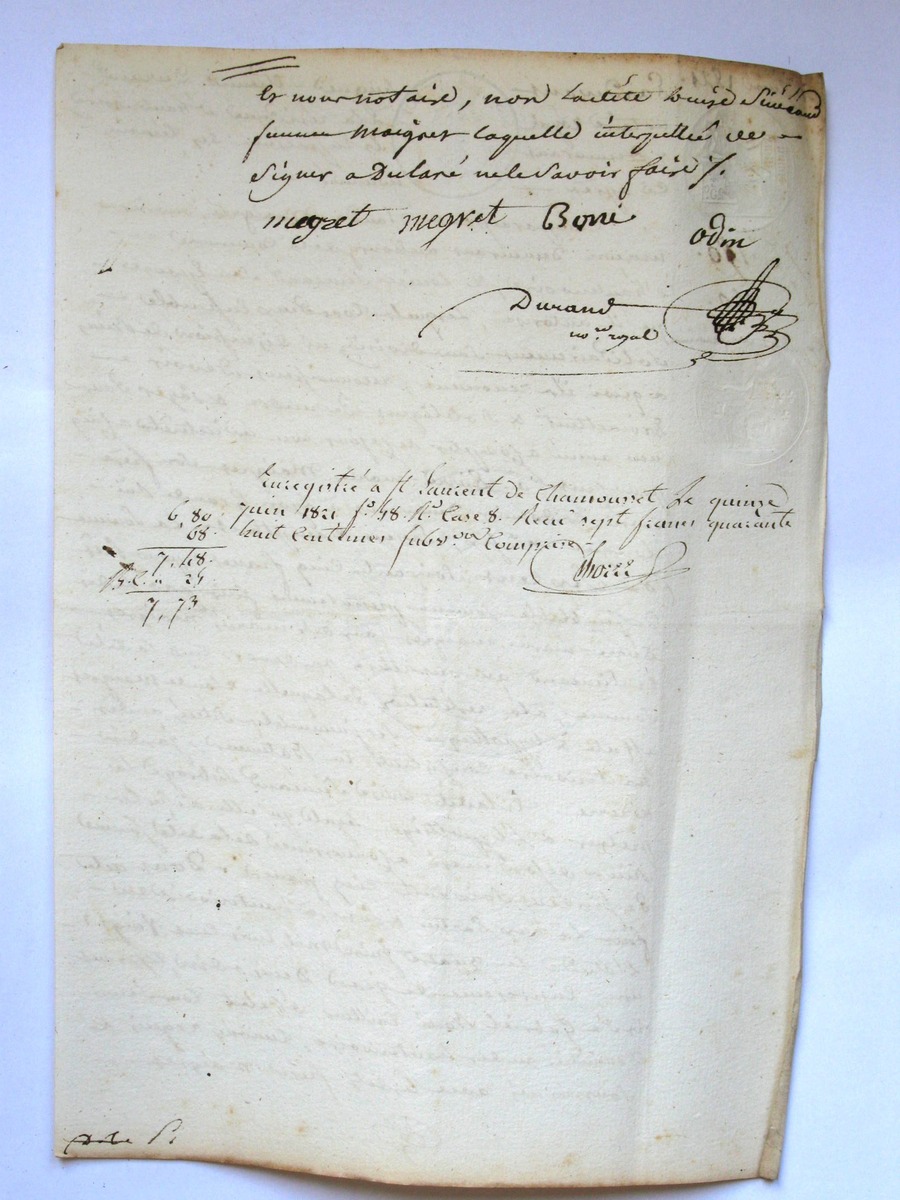 et nous notaire, non ladite Louise Simeand
femme Maigret laquelle interpellée de
signer a Declaré ne le Savoir faire /.
megret megret Boni odin
Durand
no.re royal
Enregistré a St Laurent de Chamousset Le quinze
Juin 1821 fo. 18. Ro. Case 8. Recu sept francs quarante
huit Centimes subv.on Comprise
6,80
68.
7,48.
25
7,73